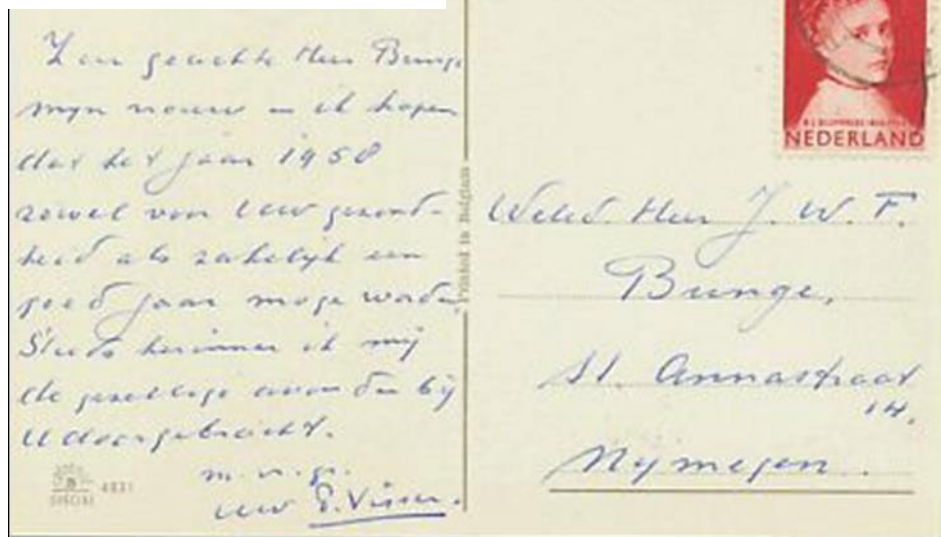 Zeer geachte Heer Bunge
mijn vrouw en ik hopen
dat het jaar 1958
zowel voor Uw gezond-
heid als zakelijk een
goed jaar moge worden
Steeds herinner ik mij
de gezellige avonden bij
U doorgebracht.
m.v.gr.
uw E. Visser.
SPECIAL 4831
Printed in Belgium
NEDERLAND
Weled. Heer J. W. F.
Bunge,
St. Annastraat
14.
Nijmegen.